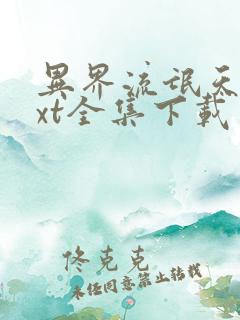 异界流氓天
xt全集下载
佟克克
未经同意禁止转载